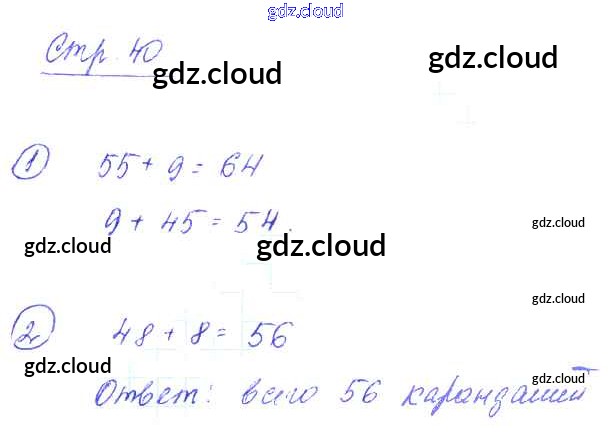 gdz.cloud
Стр. 40
gdz.cloud
gdz.cloud
1 55 + 9 = 64
9 + 45 = 54.
gdz.cloud
gdz.cloud
gdz.cloud
2 48 + 8 = 56
gdz.cloud
gdz.cloud
Ответ: всего 56 карандашей
gdz.cloud